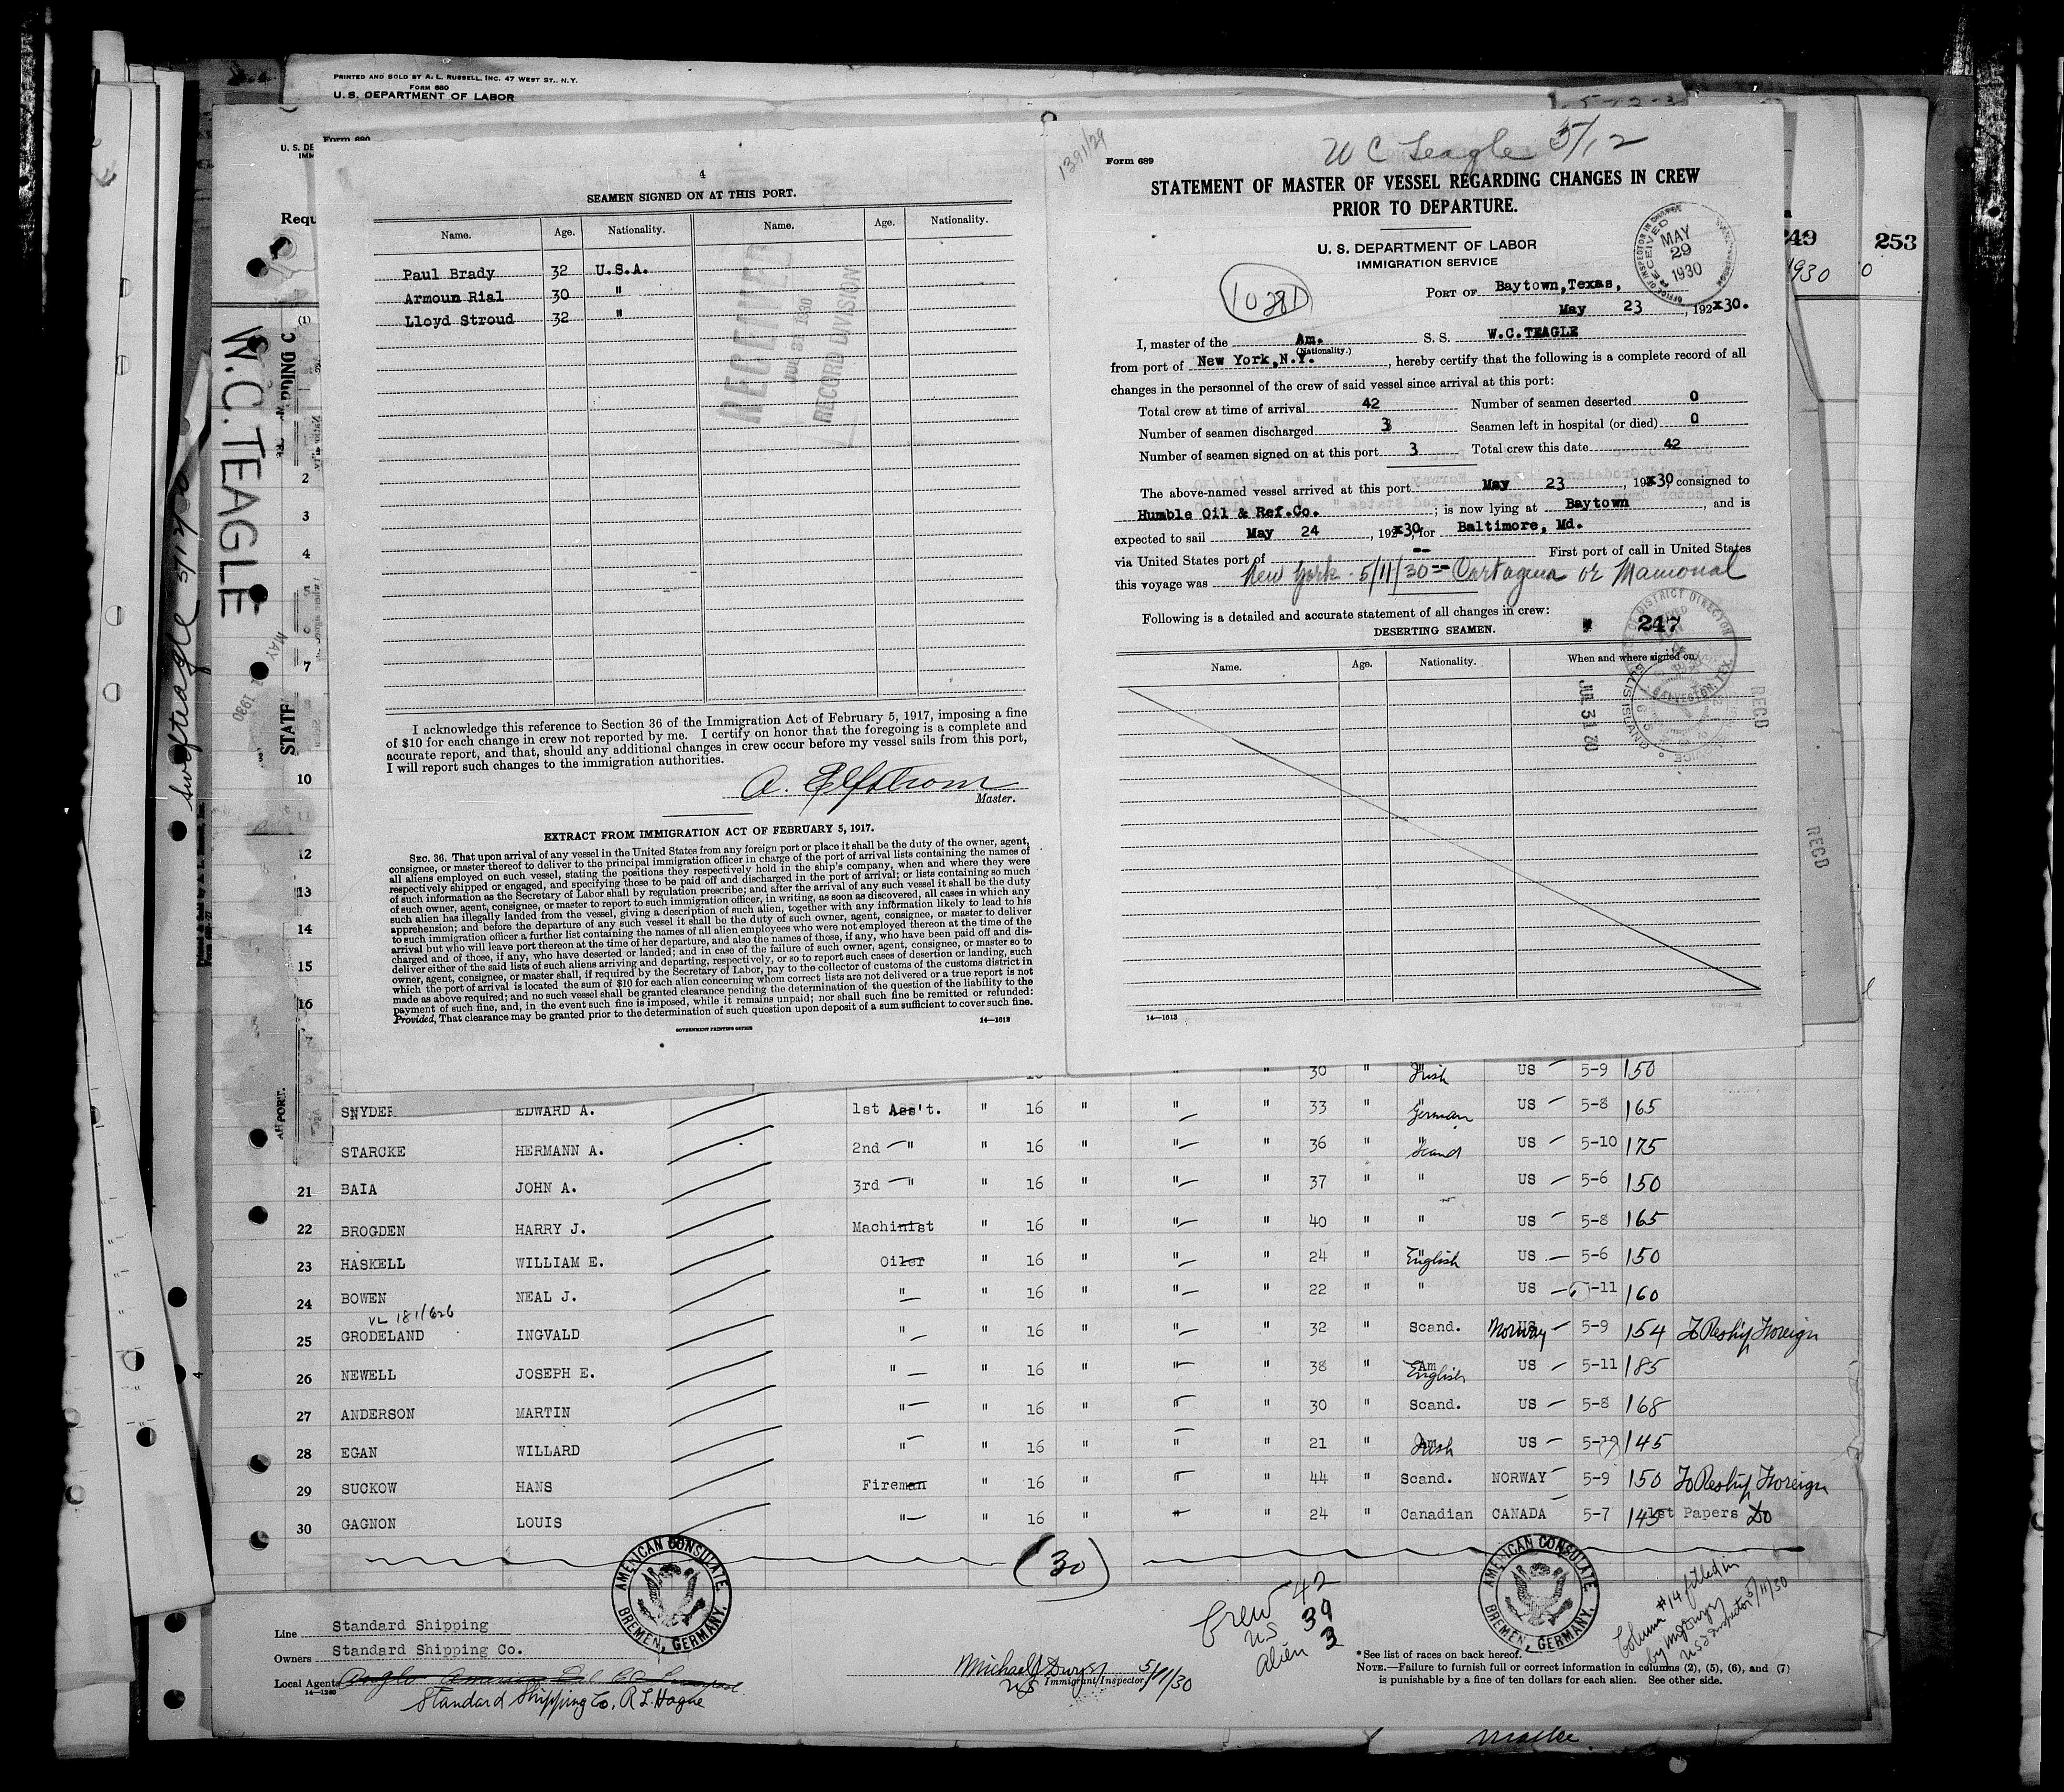 PRINTED AND SOLD BY A. L. RUSSELL, INC. 47 WEST ST., N.Y.
FORM 680
U. S. DEPARTMENT OF LABOR
Form 680
U. S. DE
IMM
Requ
W.C. TEAGLE
4
SEAMEN SIGNED ON AT THIS PORT.
Name. Age. Nationality. Name. Age. Nationality.
Paul Brady 32 U.S.A.
Armoun Rial 30 "
Lloyd Stroud 32 "
RECEIVED
RECORD DIVISION
I acknowledge this reference to Section 36 of the Immigration Act of February 5, 1917, imposing a fine
of $10 for each change in crew not reported by me. I certify on honor that the foregoing is a complete and
accurate report, and that, should any additional changes in crew occur before my vessel sails from this port,
I will report such changes to the immigration authorities.
A. Elfstrom
Master.
EXTRACT FROM IMMIGRATION ACT OF FEBRUARY 5, 1917.
SEC. 36. That upon arrival of any vessel in the United States from any foreign port or place it shall be the duty of the owner, agent,
consignee, or master thereof to deliver to the principal immigration officer in charge of the port of arrival lists containing the names of
all aliens employed on such vessel, stating the positions they respectively hold in the ship's company, when and where they were
respectively shipped or engaged, and specifying those to be paid off and discharged in the port of arrival; or lists containing so much
of such information as the Secretary of Labor shall by regulation prescribe; and after the arrival of any such vessel it shall be the duty
of such owner, agent, consignee, or master to report to such immigration officer, in writing, as soon as discovered, all cases in which any
such alien has illegally landed from the vessel, giving a description of such alien, together with any information likely to lead to his
apprehension; and before the departure of any such vessel it shall be the duty of such owner, agent, consignee, or master to deliver
to such immigration officer a further list containing the names of all alien employees who were not employed thereon at the time of the
arrival but who will leave port thereon at the time of her departure, and also the names of those, if any, who have been paid off and dis-
charged and of those, if any, who have deserted or landed; and in case of the failure of such owner, agent, consignee, or master so to
deliver either of the said lists of such aliens arriving and departing, respectively, or so to report such cases of desertion or landing, such
owner, agent, consignee, or master shall, if required by the Secretary of Labor, pay to the collector of customs of the customs district in
which the port of arrival is located the sum of $10 for each alien concerning whom correct lists are not delivered or a true report is not
made as above required; and no such vessel shall be granted clearance pending the determination of the question of the liability to the
payment of such fine, and, in the event such fine is imposed, while it remains unpaid; nor shall such fine be remitted or refunded:
Provided, That clearance may be granted prior to the determination of such question upon deposit of a sum sufficient to cover such fine.
GOVERNMENT PRINTING OFFICE 14—1613
1391/29
W C Teagle 5/12
Form 689
STATEMENT OF MASTER OF VESSEL REGARDING CHANGES IN CREW
PRIOR TO DEPARTURE.
U. S. DEPARTMENT OF LABOR
IMMIGRATION SERVICE
RECEIVED
MAY
29
1930
10281
PORT OF Baytown,Texas,
May 23, 192x30.
I, master of the Am. S. S. W.C.TEAGLE
(Nationality.)
from port of New York,N.Y., hereby certify that the following is a complete record of all
changes in the personnel of the crew of said vessel since arrival at this port:
Total crew at time of arrival 42 Number of seamen deserted 0
Number of seamen discharged 3 Seamen left in hospital (or died) 0
Number of seamen signed on at this port 3 Total crew this date 42
The above-named vessel arrived at this port May 23, 19x30, consigned to
Humble Oil & Ref.Co.; is now lying at Baytown, and is
expected to sail May 24, 192x30, for Baltimore, Md.
via United States port of -- First port of call in United States
this voyage was New York - 5/11/30 = Cartagena or Mamonal
Following is a detailed and accurate statement of all changes in crew:
DESERTING SEAMEN. 247
Name. Age. Nationality. When and where signed on.
JUL 31 30
RECD
RECD
14—1613
249 253
1930
30 " Irish US 5-9 150
SNYDER EDWARD A. 1st Ass't. " 16 " " " 33 " German US 5-8 165
STARCKE HERMANN A. 2nd " " 16 " " " 36 " Scand US 5-10 175
21 BAIA JOHN A. 3rd " " 16 " " " 37 " " US 5-6 150
22 BROGDEN HARRY J. Machinist " 16 " " " 40 " " US 5-8 165
23 HASKELL WILLIAM E. Oiler " 16 " " " 24 " English US 5-6 150
24 BOWEN NEAL J. " " 16 " " " 22 " " US 5-11 160
VL 181/626
25 GRODELAND INGVALD " " 16 " " " 32 " Scand. Norway 5-9 154 To Reship Foreign
26 NEWELL JOSEPH E. " " 16 " " " 38 " English US 5-11 185
27 ANDERSON MARTIN " " 16 " " " 30 " Scand. US 5-8 168
28 EGAN WILLARD " " 16 " " " 21 " Irish US 145
29 SUCKOW HANS Fireman " 16 " " " 44 " Scand. NORWAY 5-9 150 To Reship Foreign
30 GAGNON LOUIS " " 16 " " " 24 " Canadian CANADA 5-7 145 1st Papers Do
(30)
AMERICAN CONSULATE,
BREMEN, GERMANY.
AMERICAN CONSULATE,
BREMEN, GERMANY.
Crew 42
US 39
alien 3
Column #14 filled in
US Inspector 5/11/30
Line Standard Shipping
Owners Standard Shipping Co.
Local Agents
14—1240
Standard Shipping Co, R L Hague
Michael 5/11/30
US Immigrant Inspector
*See list of races on back hereof.
NOTE.—Failure to furnish full or correct information in columns (2), (5), (6), and (7)
is punishable by a fine of ten dollars for each alien. See other side.